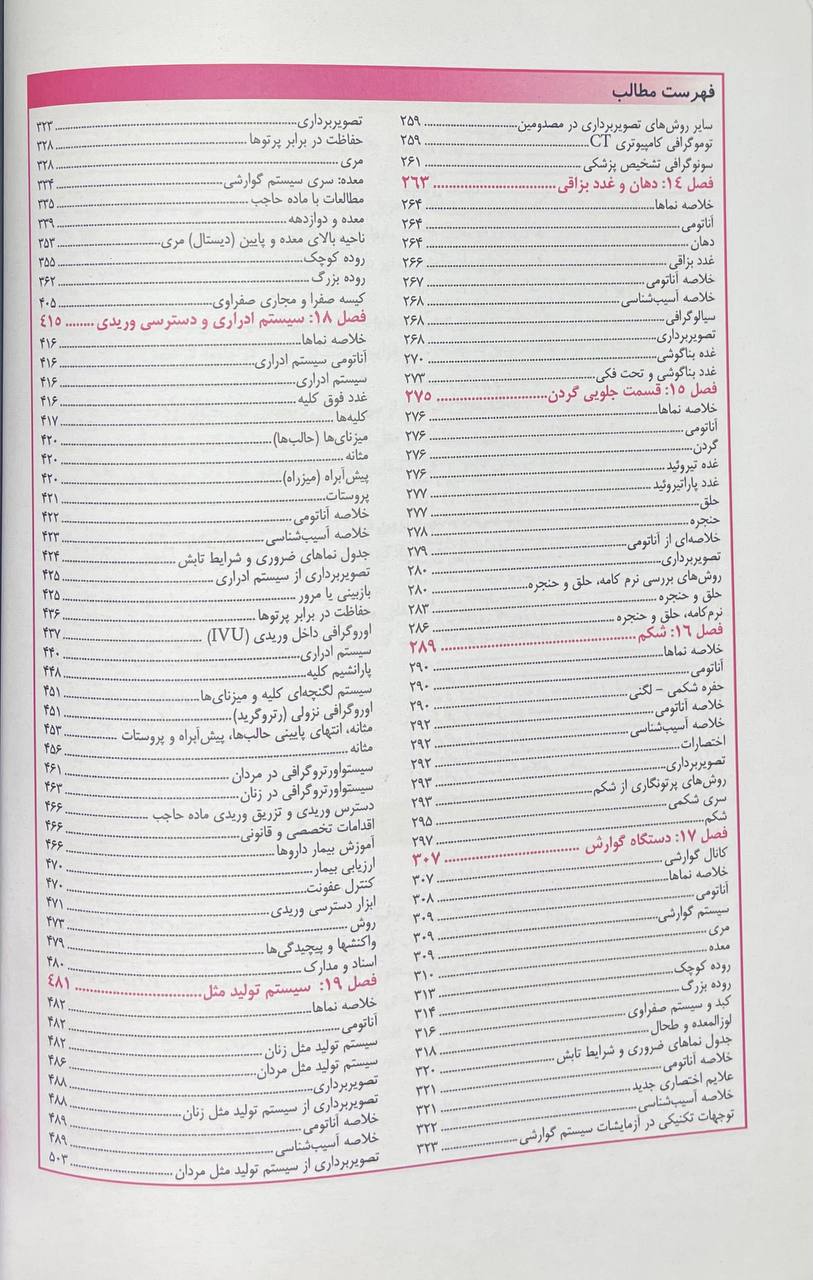 فهرست مطالب
سایر روش‌های تصویربرداری در مصدومین ۲۵۹
توموگرافی کامپیوتری CT ۲۵۹
سونوگرافی تشخیص پزشکی ۲۶۱
فصل ۱۴: دهان و غدد بزاقی ۲۶۳
خلاصه نماها ۲۶۴
آناتومی ۲۶۴
دهان ۲۶۴
غدد بزاقی ۲۶۶
خلاصه آناتومی ۲۶۷
خلاصه آسیب‌شناسی ۲۶۸
سیالوگرافی ۲۶۸
تصویربرداری ۲۶۸
غده بناگوشی ۲۷۰
غدد بناگوشی و تحت فکی ۲۷۳
فصل ۱۵: قسمت جلویی گردن ۲۷۵
خلاصه نماها ۲۷۶
آناتومی ۲۷۶
گردن ۲۷۶
غده تیروئید ۲۷۶
غدد پاراتیروئید ۲۷۷
حلق ۲۷۷
حنجره ۲۷۸
خلاصه‌ای از آناتومی ۲۷۹
تصویربرداری ۲۸۰
روش‌های بررسی نرم کامه، حلق و حنجره ۲۸۰
حلق و حنجره ۲۸۳
نرم‌کامه، حلق و حنجره ۲۸۶
فصل ۱۶: شکم ۲۸۹
خلاصه نماها ۲۹۰
آناتومی ۲۹۰
حفره شکمی – لگنی ۲۹۰
خلاصه آناتومی ۲۹۲
خلاصه آسیب‌شناسی ۲۹۲
اختصارات ۲۹۲
تصویربرداری ۲۹۳
روش‌های پرتونگاری از شکم ۲۹۳
سری شکمی ۲۹۵
شکم ۲۹۷
فصل ۱۷: دستگاه گوارش ۳۰۷
کانال گوارشی ۳۰۷
خلاصه نماها ۳۰۸
آناتومی ۳۰۹
سیستم گوارشی ۳۰۹
مری ۳۰۹
معده ۳۱۰
روده کوچک ۳۱۳
روده بزرگ ۳۱۴
کبد و سیستم صفراوی ۳۱۶
لوزالمعده و طحال ۳۱۸
جدول نماهای ضروری و شرایط تابش ۳۲۰
خلاصه آناتومی ۳۲۱
علایم اختصاری جدید ۳۲۱
خلاصه آسیب‌شناسی ۳۲۲
توجهات تکنیکی در آزمایشات سیستم گوارشی ۳۲۳
تصویربرداری ۳۲۳
حفاظت در برابر پرتوها ۳۲۸
مری ۳۲۸
معده: سری سیستم گوارشی ۳۳۴
مطالعات با ماده حاجب ۳۳۵
معده و دوازدهه ۳۳۹
ناحیه بالای معده و پایین (دیستال) مری ۳۵۳
روده کوچک ۳۵۵
روده بزرگ ۳۶۲
کیسه صفرا و مجاری صفراوی ۴۰۵
فصل ۱۸: سیستم ادراری و دسترسی وریدی ۴۱۵
خلاصه نماها ۴۱۶
آناتومی سیستم ادراری ۴۱۶
سیستم ادراری ۴۱۶
غدد فوق کلیه ۴۱۶
کلیه‌ها ۴۱۷
میزنای‌ها (حالب‌ها) ۴۲۰
مثانه ۴۲۰
پیش‌آبراه (میزراه) ۴۲۰
پروستات ۴۲۱
خلاصه آناتومی ۴۲۲
خلاصه آسیب‌شناسی ۴۲۳
جدول نماهای ضروری و شرایط تابش ۴۲۴
تصویربرداری از سیستم ادراری ۴۲۵
بازبینی یا مرور ۴۲۵
حفاظت در برابر پرتوها ۴۳۶
اوروگرافی داخل وریدی (IVU) ۴۳۷
سیستم ادراری ۴۴۰
پارانشیم کلیه ۴۴۸
سیستم لگنچه‌ای کلیه و میزنای‌ها ۴۵۱
اوروگرافی نزولی (رتروگرید) ۴۵۱
مثانه، انتهای پایینی حالب‌ها، پیش‌آبراه و پروستات ۴۵۳
مثانه ۴۵۶
سیستواورتروگرافی در مردان ۴۶۱
سیستواورتروگرافی در زنان ۴۶۳
دسترس وریدی و تزریق وریدی ماده حاجب ۴۶۶
اقدامات تخصصی و قانونی ۴۶۶
آموزش بیمار داروها ۴۶۶
ارزیابی بیمار ۴۷۰
کنترل عفونت ۴۷۰
ابزار دسترسی وریدی ۴۷۱
روش ۴۷۳
واکنشها و پیچیدگی‌ها ۴۷۹
اسناد و مدارک ۴۸۰
فصل ۱۹: سیستم تولید مثل ۴۸۱
خلاصه نماها ۴۸۲
آناتومی ۴۸۲
سیستم تولید مثل زنان ۴۸۲
سیستم تولید مثل مردان ۴۸۶
تصویربرداری ۴۸۸
تصویربرداری از سیستم تولید مثل زنان ۴۸۸
خلاصه آناتومی ۴۸۹
خلاصه آسیب‌شناسی ۴۸۹
تصویربرداری از سیستم تولید مثل مردان ۵۰۳